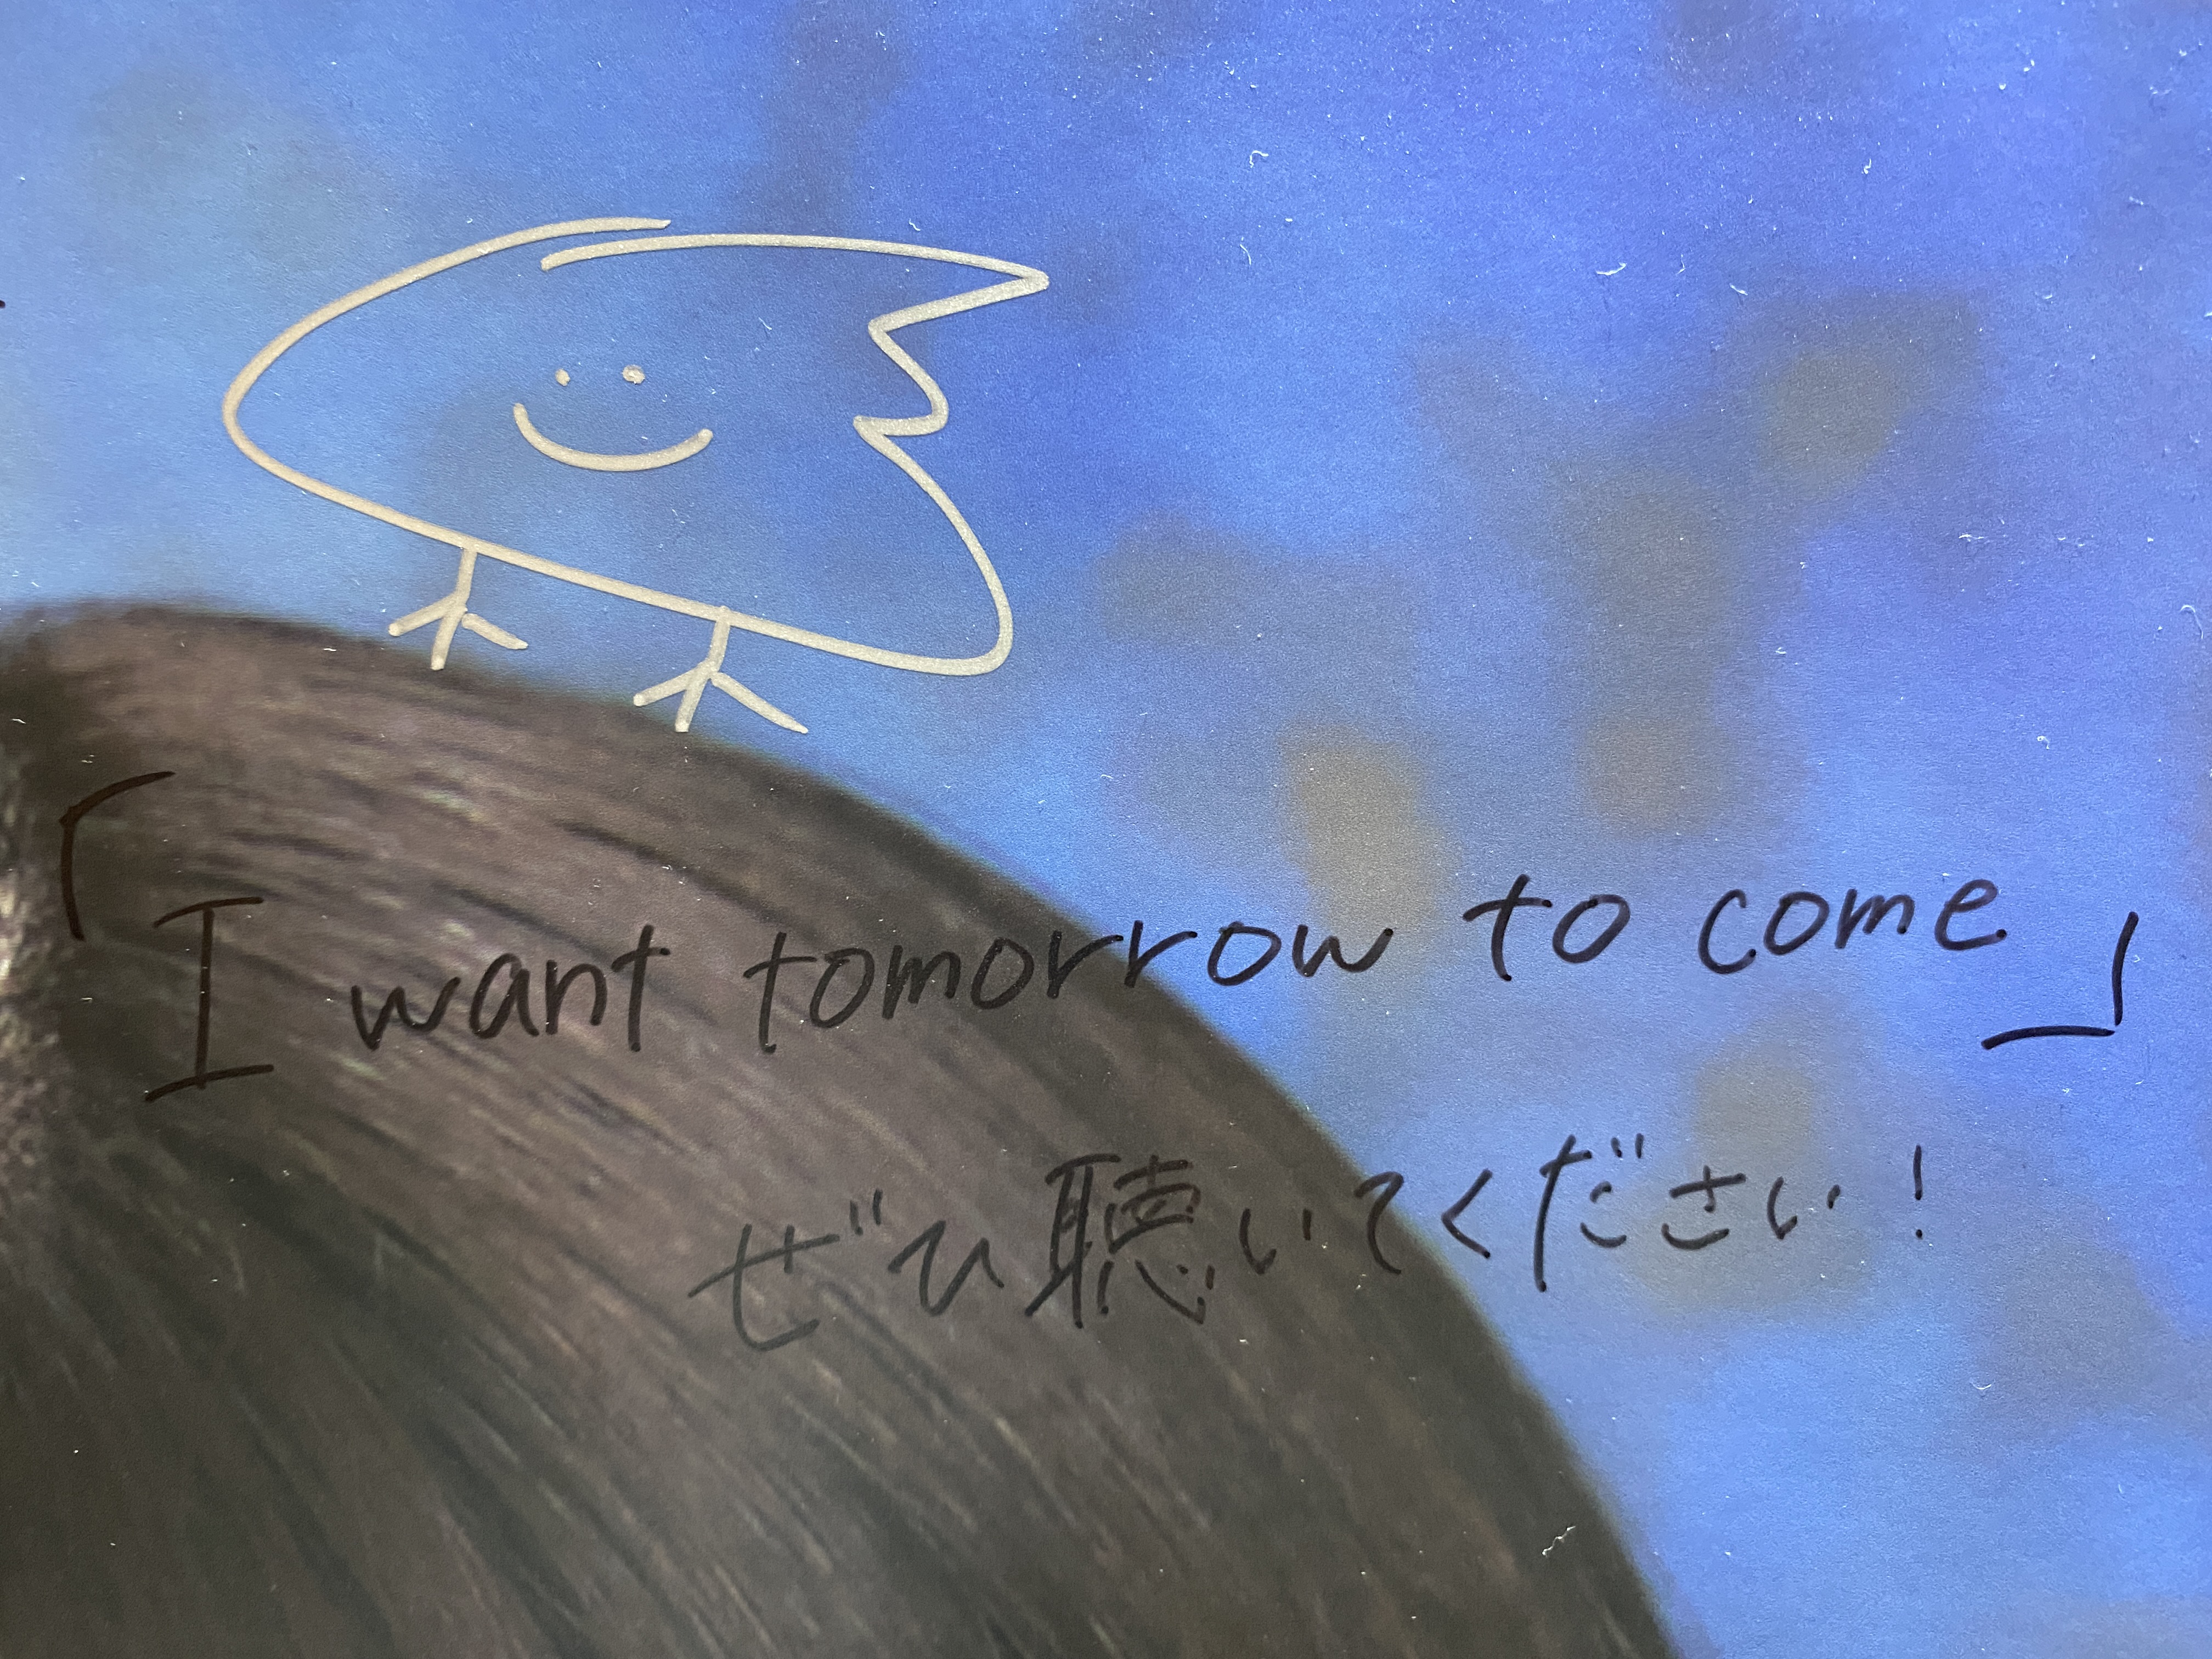 「I want tomorrow to come」
ぜひ聴いてください!